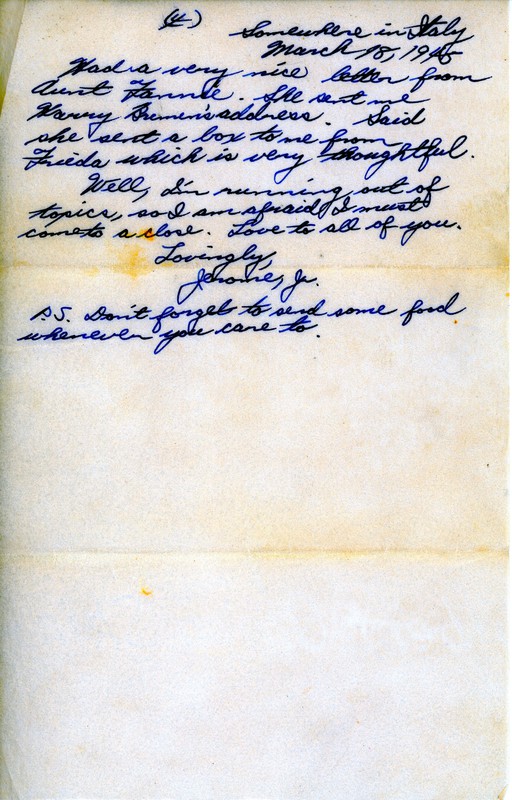 (4)
Somewhere in Italy
March 18, 1945
Had a very nice letter from
Aunt Fannie. She sent me
Harry Bremen's address. Said
she sent a box to me from
Frieda which is very thoughtful.
Well, I'm running out of
topics, so I am afraid I must
come to a close. Love to all of you.
Lovingly,
Jerome, Jr.
P.S. Don't forget to send some food
whenever you care to.